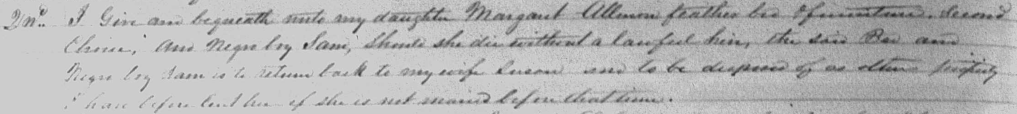 2nd. I Give and bequeath unto my daughter Margaret Allemon feather bed & furniture, Second
Choice, And Negro boy Sam, Should she die without a lawfull hire, the said Bed and
Negro boy Sam is to return back to my wife Susan and to be disposed of as other property
I have before lent her if she is not maried before that time.